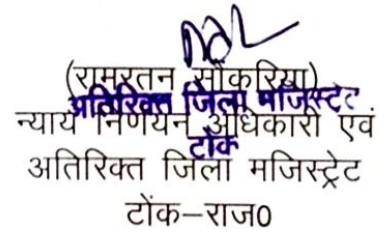 (रामरतन सौंकरिया)
अतिरिक्त जिला मजिस्ट्रेट
न्याय निर्णयन अधिकारी एवं
टोंक
अतिरिक्त जिला मजिस्ट्रेट
टोंक–राज0